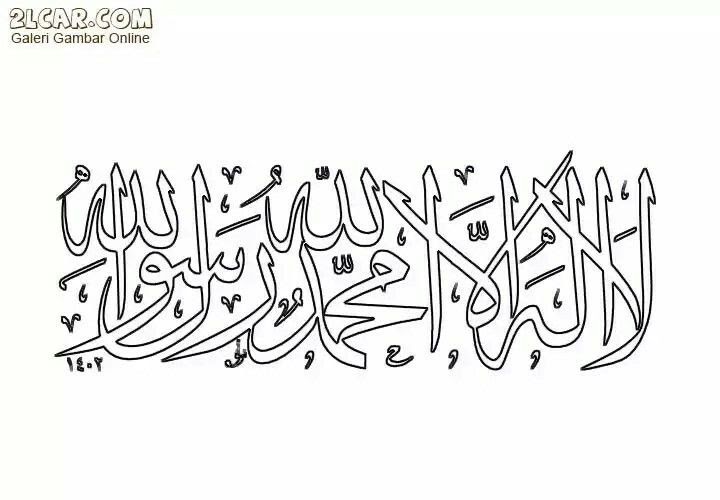 2LCAR.COM
Galeri Gambar Online
لا إله إلا الله محمد رسول الله
١٤٠٢